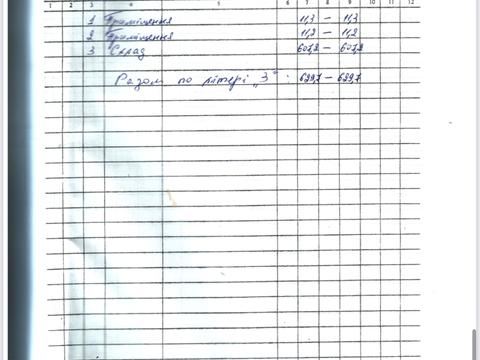 1 2 3 4 5 6 7 8 9 10 11 12
1 Приміщення 11,3 — 11,3
2 Приміщення 11,2 — 11,2
3 Склад 607,2 — 607,2
Разом по літері „З“: 629,7 — 629,7